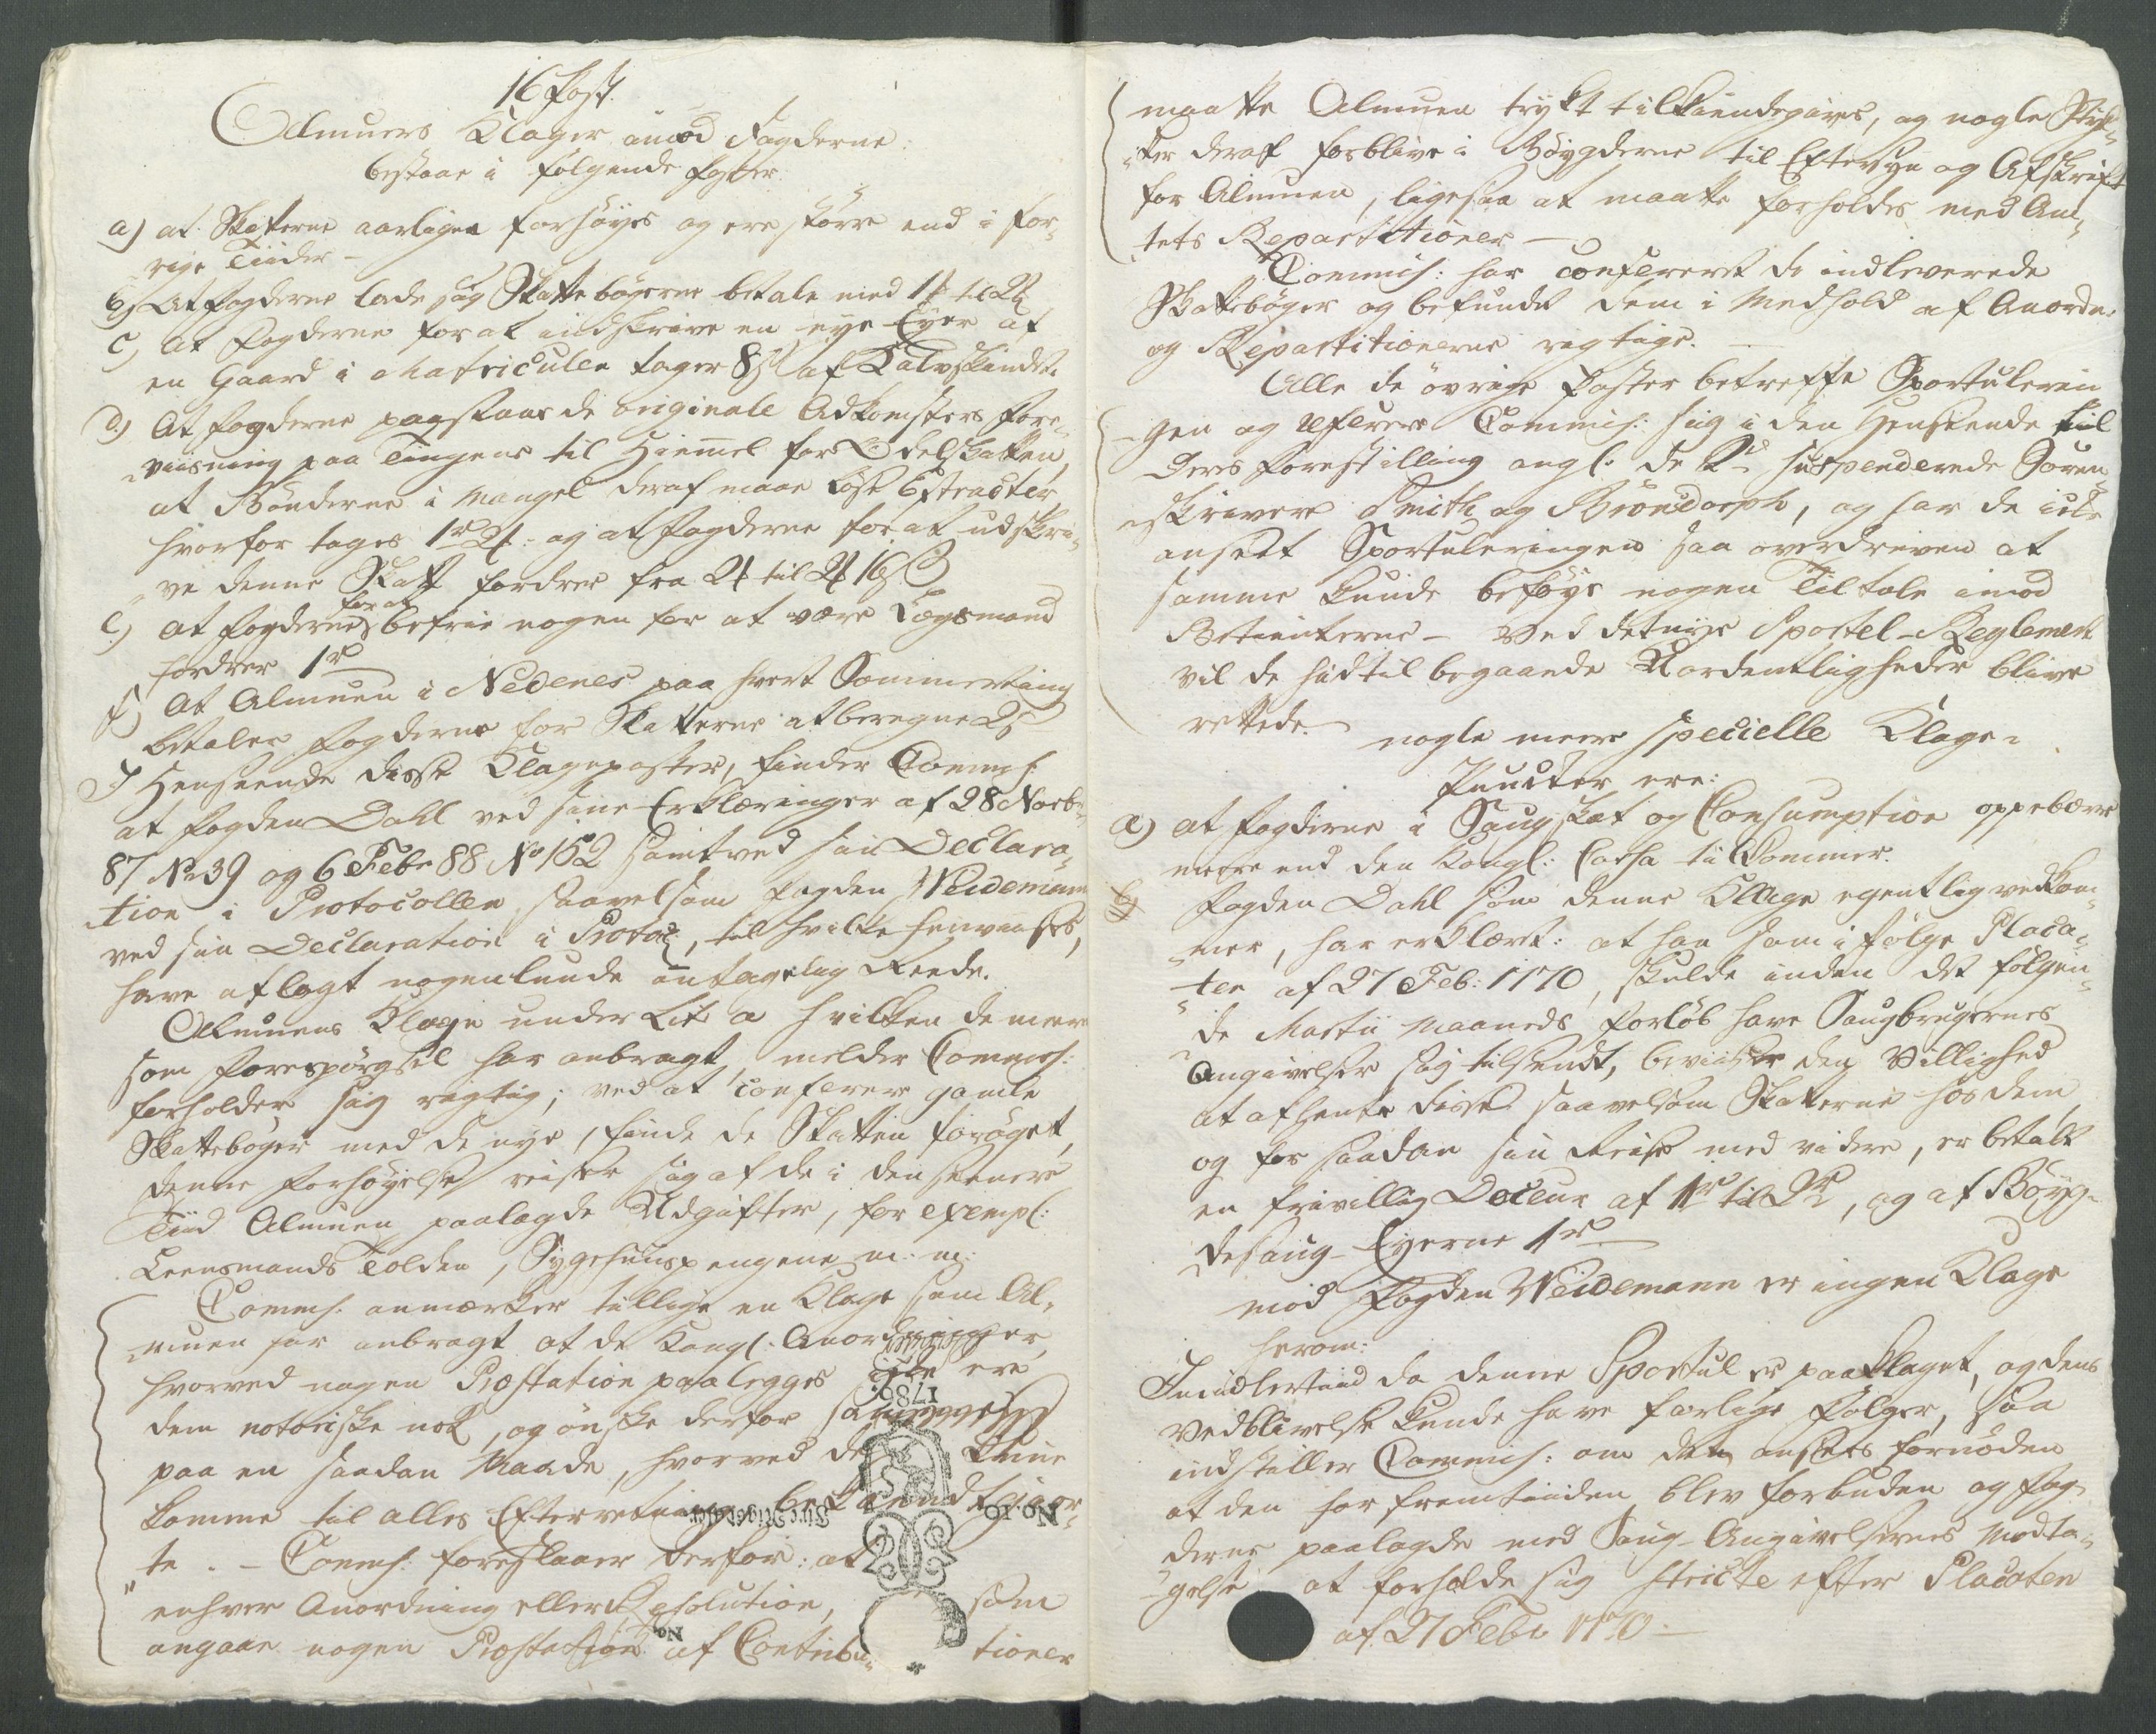 16 Post.
Almuens Klager imod Fogderne
bestaae i følgende Poster
a) at Skatterne aarligen forhøyes og ere større end i for¬
rige Tiider -
b) At Fogderne lade sig Skattebøgerne betale med
c) At Fogderne for at indskrive en nye Eyer af
en Gaard i Matriculen tager 8 s af Kalvskindet
d.) At Fogderne paastaar de originale Adkomsters fore¬
viisning paa Tingene til Hiemmel for Odelskatten,
at Bønderne i Mangel deraf maae løse Extracter
hvorfor tages og at Fogderne for at udskri¬
ve denne Skatt fordrer fra til
e) at Fogderne for at befrie nogen for at være Lægsmand
fordrer 1 rd
f) At Almuen i Nedenes paa hvert Sommerting
betaler Fogderne for Skatterne at beregne 2 s
I Henseende disse Klageposter, finder Commiss:
at Fogden Dahl ved sine Erklæringer af 28 Novbr
87 No 39 og 6 Febr 88 No 152 samt ved sin Declara¬
tion i Protocollen, saavelsom Fogden Weidemann
ved sin Declaration i Protoc:, til hvilke henviises,
have aflagt nogenlunde antagelig Reede.
Almuens Klage under Lit a hvilken de meere
som Forespørgsel har anbragt, melder Commiss:
forholder sig rigtig; ved at conferere gamle
Skattebøger med de nye, finde de Skatten forøget,
denne Forhøyelse reiser sig af de i den seenere
Tiid Almuen paalagde Udgifter, for exempl:
Leensmands Tolden, Sygehuuspengene m: m:
Commiss: anmærker tillige en Klage som Al¬
muen har anbragt at de Kongl: Anordninger,
hvorved nogen Præstation paalegges ikke ere
dem notoriske nok, og ønske derfor
paa en saadan Maade, hvorved de kunne
komme til alles Efterretning bekiendtgior¬
te. - Commiss: foreslaaer derfor: at
enhver Anordning eller Resolution, som
angaae nogen Præstation af Contribu¬tioner
1786.
No. 10
No
maatte Almuen trykt tilkiendegives, og nogle Styk¬
ker deraf forblive i Bøygderne til Eftersyn og Afskrift
for Almuen, ligesaa at maatte forholdes med Am¬
tets Repartitioner -
Commiss: har confereret de indleverede
Skattebøger og befundet dem i Medhold af Anordn:
og Repartitionerne rigtige. -
Alle de øvrige Poster betreffe Sportulerin¬
gen og refererer Commiss: sig i den Henseende til
Deres Forestilling angl: de 2de suspenderede Soren¬
skrivere Smith og Brøndorph, og har de icke
anseet Sportuleringen saa overdreven at
samme kunde beføye nogen Tiltale imod
Betienterne - Ved det nye Sportel-Reglement
vil de hidtil begaaede Uordentligheder blive
rettede.
nogle meere specielle Klage¬
Puncter ere:
a) at Fogderne i Saugskat og Consumption oppebære
meere end den Kongl: Cassa tilkommer.
Fogden Dahl som denne Klage egentlig vedkom¬
mer, har erklæret: at han som i følge Placa¬
ten af 27 Feb: 1770, skulde inden det følgen¬
de Martii Maaneds Forløb have Saugbrugernes
Angivelser sig tilsendt, beviiser den Villighed
at afhente disse saavelsom Skatterne hos dem,
og for saadan sin Reise med videre, er betalt
en frivillig Doceur af 1 rd til 2 rd, og af Bøyg¬
desaug-Eyerne 1 rd
mod Fogden Weidemann er ingen Klage
herom:
Imidlertiid da denne Sportul er paaklaget, og dens
Vedblivelse kunde have farlige Følger, saa
indstiller Commiss: om det ansees fornøden
at den for fremtiiden blev forbuden og Fog¬
derne paalagde med Saug-Angivelsernes Modta¬
gelse at forholde sig stricte efter Placaten
af 27 Febr 1770. -